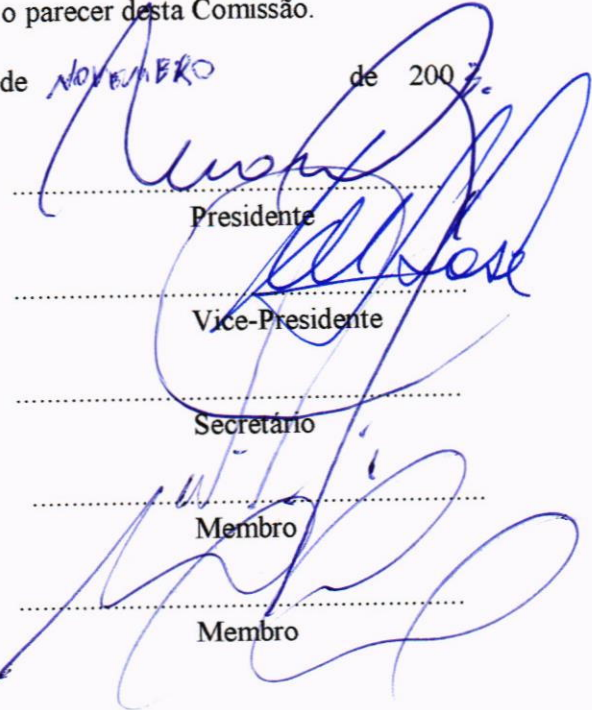 o parecer desta Comissão.
de NOVEMBRO de 200
Presidente
José
Vice-Presidente
Secretário
Membro
Membro